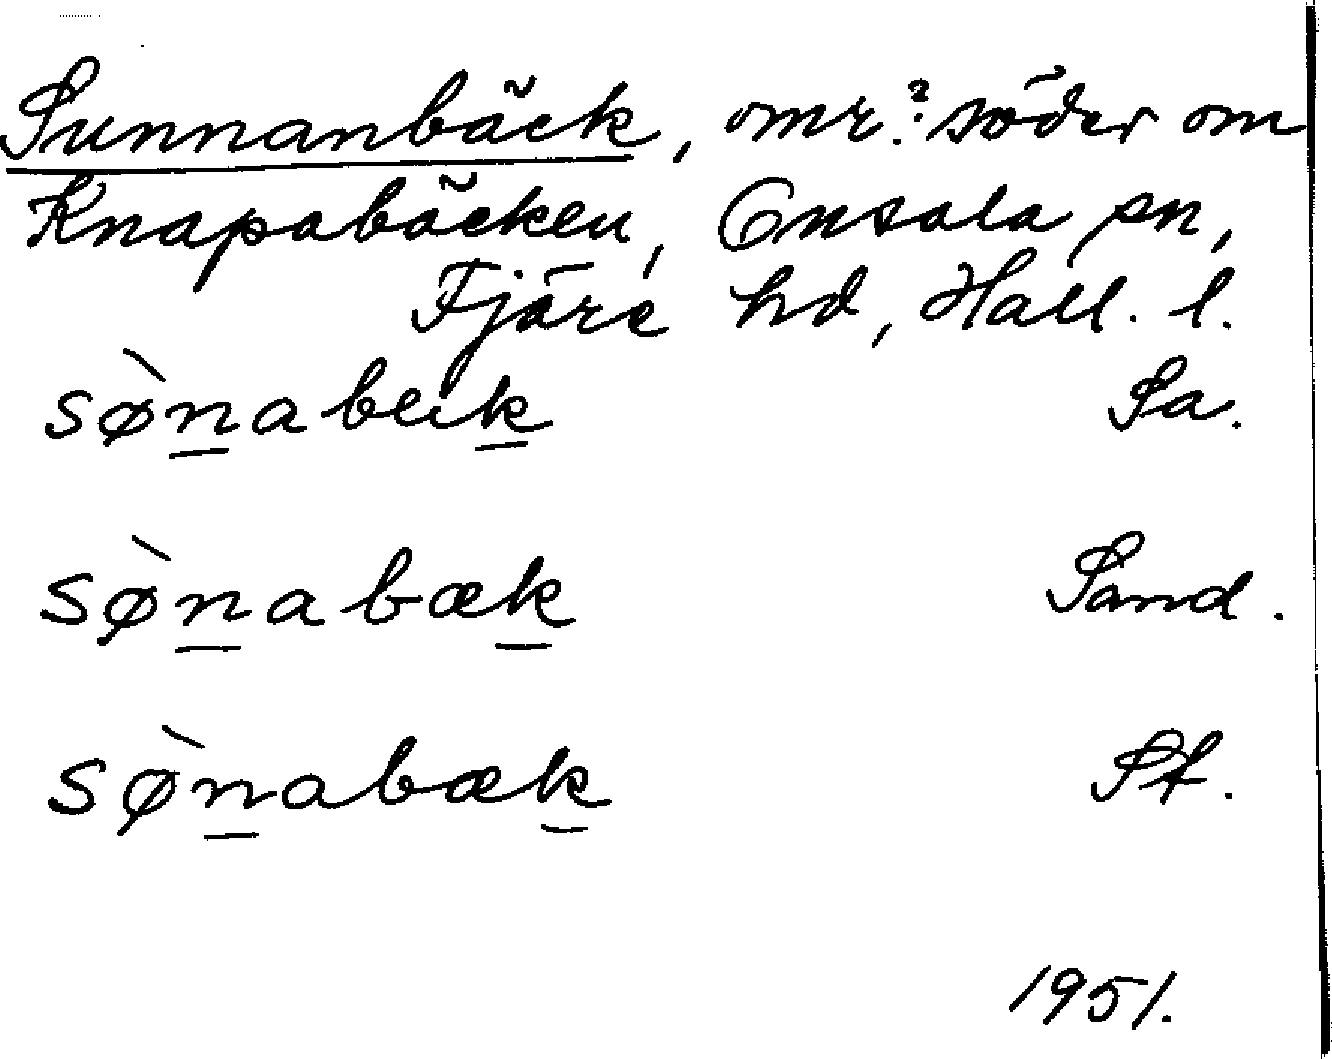 Sunnanbäck, omr.? söder om
Knapabäcken, Onsala sn,
Fjäre hd, Hall. l.
sø̀nabeik Sa.
sø̀nabæk Sand.
sø̀nabæk St.
1951.